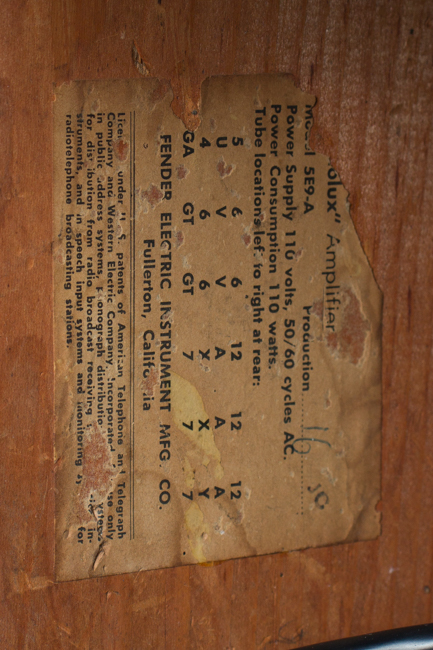 olux" Amplifier
Model 5E9-A Production 16
Power Supply 110 volts, 50/60 cycles AC.
Power Consumption 110 watts.
Tube locations left to right at rear:
5 6 6 12 12 12
U V V A A A
4 6 6 X X Y
GA GT GT 7 7 7
FENDER ELECTRIC INSTRUMENT MFG. CO.
Fullerton, California
Licensed under U. S. patents of American Telephone and Telegraph
Company and Western Electric Company Incorporated use only
in public address systems, phonograph distribution systems
for distribution from radio broadcast receiving in-
struments, and in speech input systems and monitoring for
radiotelephone broadcasting stations.